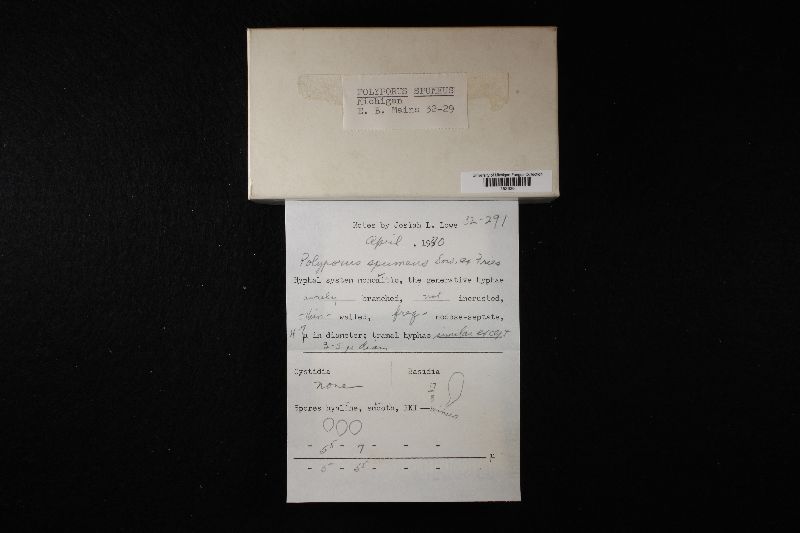 POLYPORUS SPUMEUS
Michigan
E. B. Mains 32-29
University of Michigan Fungus Collection
Notes by Josiah L. Lowe 32-291
April, 1970
Polyporus spumeus Sow. ex Fries
Hyphal system monomitic, the generative hyphae
rarely branched, not incrusted,
thin- walled, freq- nodose-septate,
4-7 µ in diameter; tramal hyphae similar except
3-5 µ diam
Cystidia Basidia
none 17
8
Spores hyaline, smooth, IKI — minus
- 5⁵ - 7 - - -
µ
- 5 - 5⁵ - - -